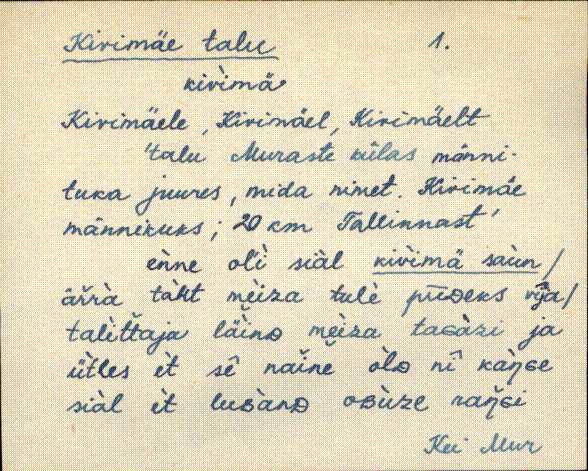 Kirimäe talu 1.
kiri̬mä
Kirimäele, Kirimäel, Kirimäelt
'talu Muraste külas männi-
tuka juures, mida nimet. Kirimäe
männikuks; 20 km Tallinnast'
ènne ol'i siàl kivìmä saùn/
ärrà tàht mèiza tulè pīᴅeks vī̆ja/
talìttaja läìnᴅ mèiza taɢàzi ja
ütles èt sê naine òlᴅ nî kàŋ̀ɢe
siàl èt luʙànᴅ oʙùze raŋ̀ɢi
Kei Mur